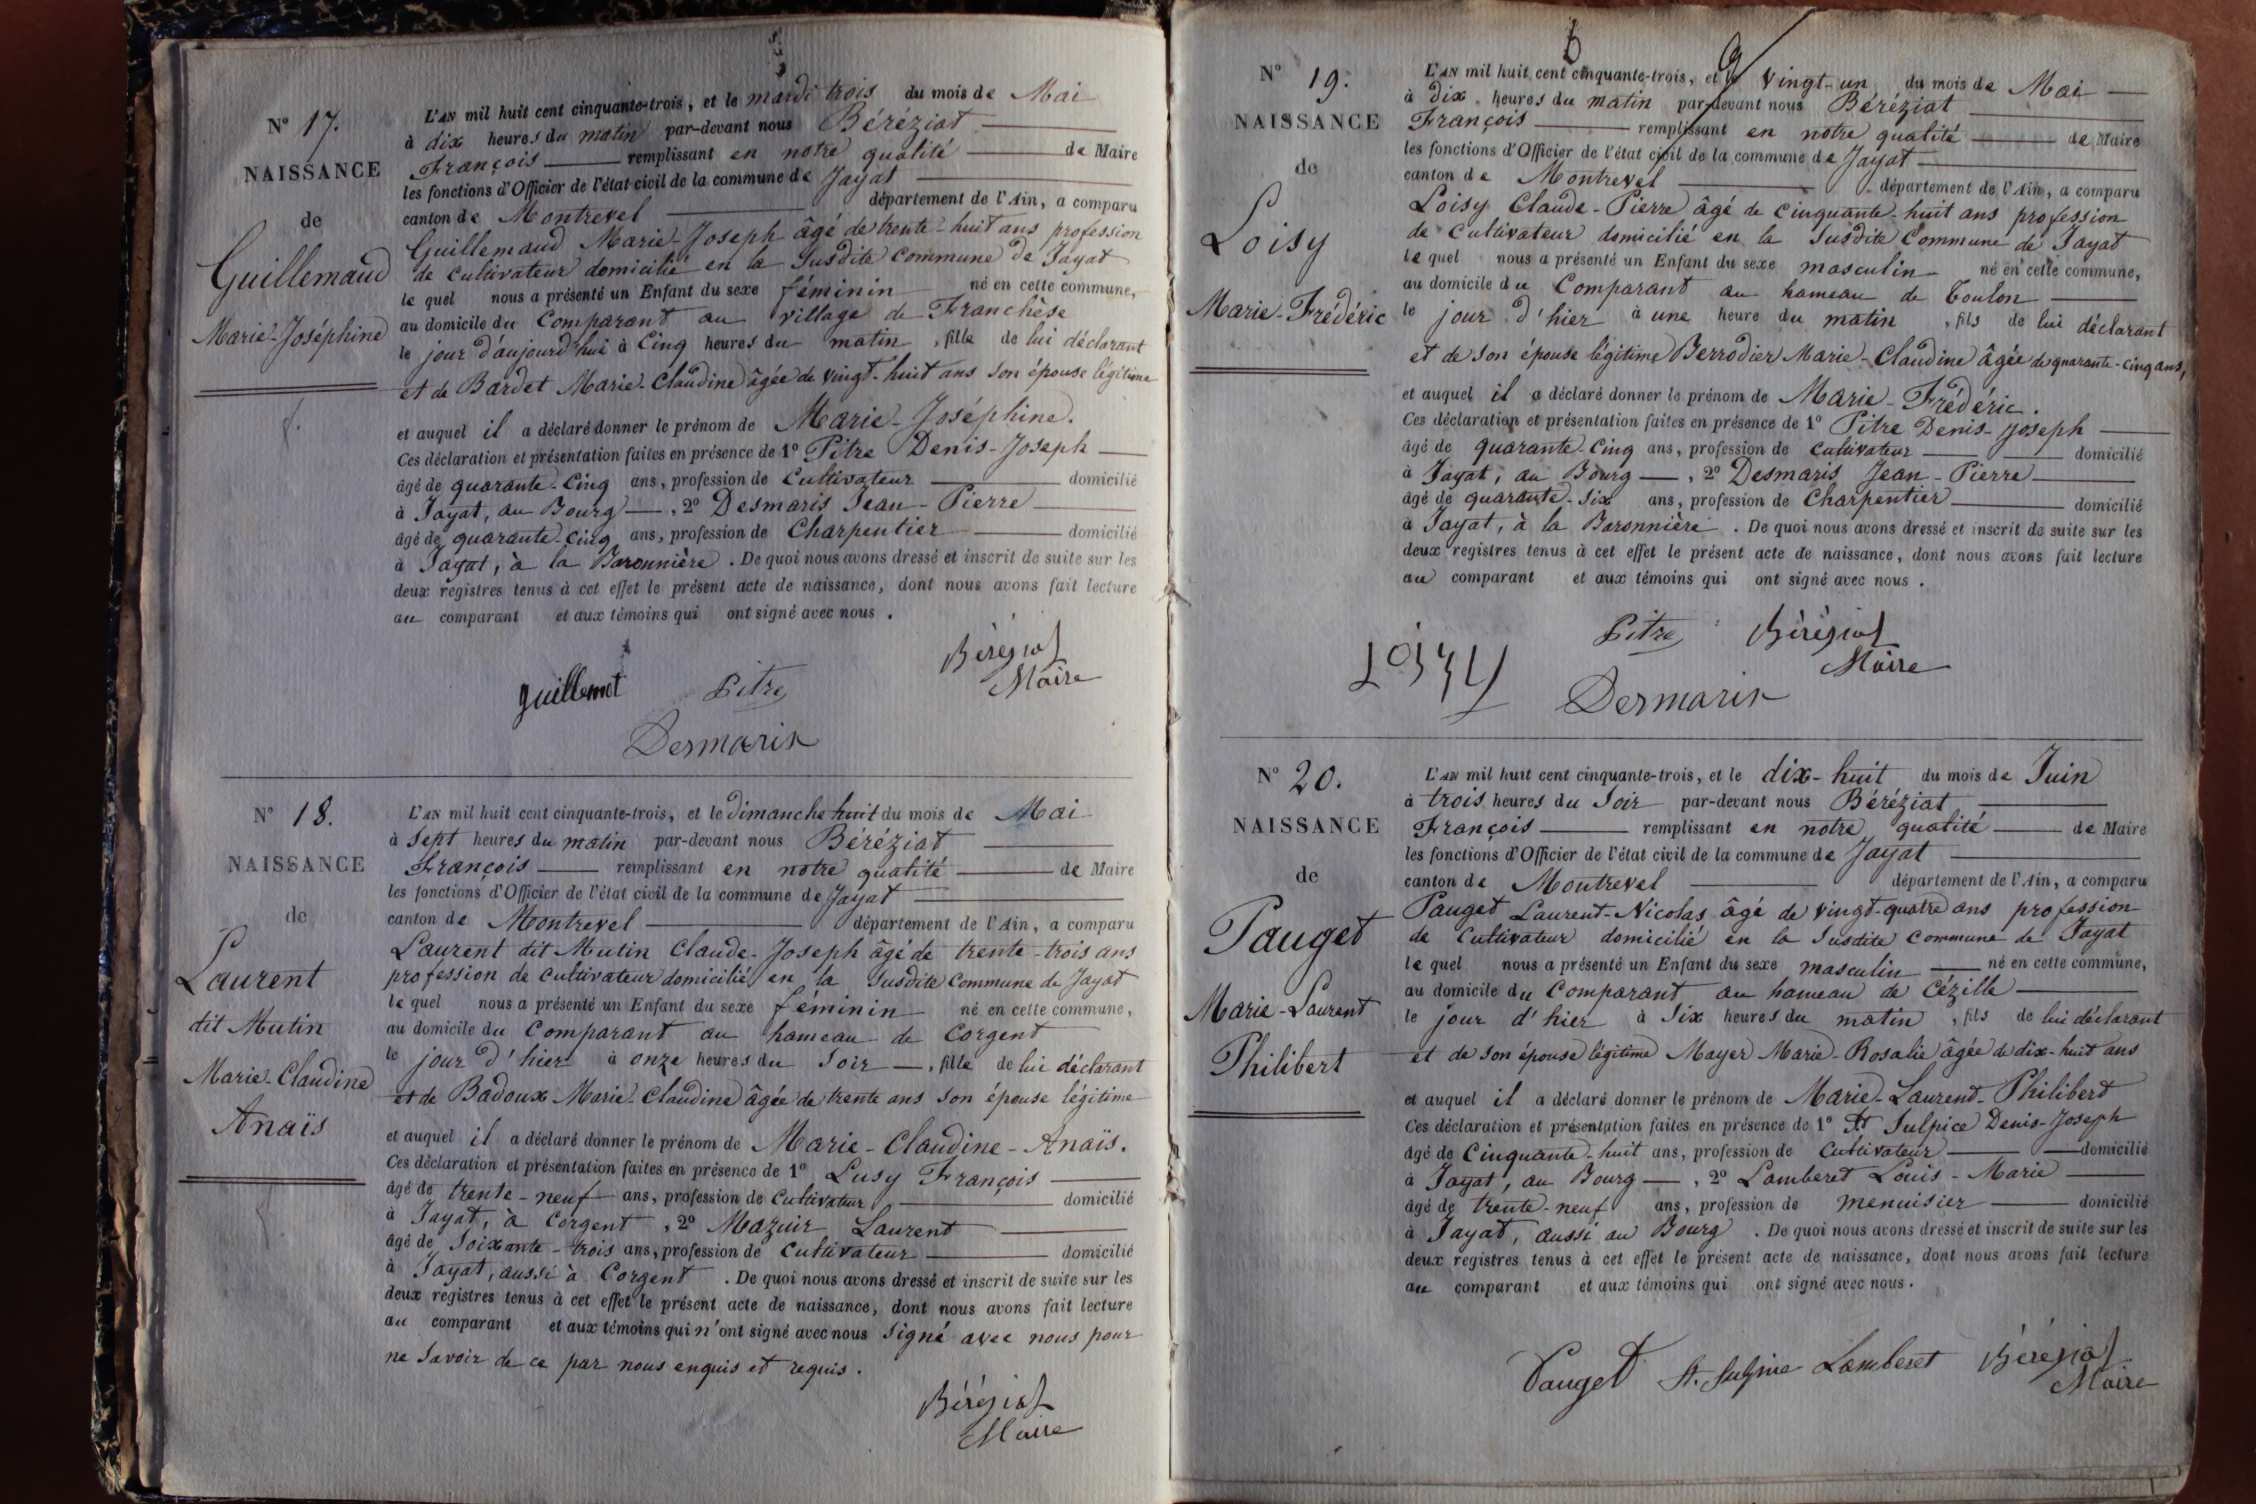 N° 17.
NAISSANCE
de
Guillemaud
Marie-Joséphine
L'AN mil huit cent cinquante-trois, et le mardi trois du mois de Mai
à dix heures du matin par-devant nous Béréziat
François remplissant en notre qualité de Maire
les fonctions d'Officier de l'état civil de la commune de Jayat
canton de Montrevel département de l'Ain, a comparu
Guillemaud Marie-Joseph âgé de trente-huit ans profession
de cultivateur domicilié en la susdite commune de Jayat
le quel nous a présenté un Enfant du sexe féminin né en cette commune,
au domicile du Comparant au village de Franchèse
le jour d'aujourd'hui à Cinq heures du matin, fille de lui déclarant
et de Bardet Marie-Claudine âgée de vingt-huit ans son épouse légitime
et auquel il a déclaré donner le prénom de Marie-Joséphine.
Ces déclaration et présentation faites en présence de 1° Pitre Denis-Joseph
âgé de quarante-Cinq ans, profession de Cultivateur domicilié
à Jayat, au Bourg, 2° Desmaris Jean-Pierre
âgé de quarante-cinq ans, profession de Charpentier domicilié
à Jayat, à la Baronnière. De quoi nous avons dressé et inscrit de suite sur les
deux registres tenus à cet effet le présent acte de naissance, dont nous avons fait lecture
au comparant et aux témoins qui ont signé avec nous.
guillemot Pitre Béréziat
Maire
Desmaris
N° 18.
NAISSANCE
de
Laurent
dit Mutin
Marie-Claudine
Anaïs
L'AN mil huit cent cinquante-trois, et le dimanche huit du mois de Mai
à Sept heures du matin par-devant nous Béréziat
François remplissant en notre qualité de Maire
les fonctions d'Officier de l'état civil de la commune de Jayat
canton de Montrevel département de l'Ain, a comparu
Laurent dit Mutin Claude-Joseph âgé de trente-trois ans
profession de cultivateur domicilié en la susdite Commune de Jayat
le quel nous a présenté un Enfant du sexe féminin né en cette commune,
au domicile du Comparant au hameau de Corgent
le jour d'hier à onze heures du Soir, fille de lui déclarant
et de Badoux Marie-Claudine âgée de trente ans son épouse légitime
et auquel il a déclaré donner le prénom de Marie-Claudine-Anaïs.
Ces déclaration et présentation faites en présence de 1° Lusy François
âgé de trente-neuf ans, profession de Cultivateur domicilié
à Jayat, à Corgent, 2° Mazuir Laurent
âgé de Soixante-trois ans, profession de Cultivateur domicilié
à Jayat, aussi à Corgent. De quoi nous avons dressé et inscrit de suite sur les
deux registres tenus à cet effet le présent acte de naissance, dont nous avons fait lecture
au comparant et aux témoins qui n'ont signé avec nous signé avec nous pour
ne savoir de ce par nous enquis et requis.
Béréziat
Maire
N° 19.
NAISSANCE
de
Loisy
Marie-Frédéric
L'AN mil huit cent cinquante-trois, et le vingt-un du mois de Mai
à dix heures du matin par-devant nous Béréziat
François remplissant en notre qualité de Maire
les fonctions d'Officier de l'état civil de la commune de Jayat
canton de Montrevel département de l'Ain, a comparu
Loisy Claude-Pierre âgé de cinquante-huit ans profession
de Cultivateur domicilié en la susdite Commune de Jayat
le quel nous a présenté un Enfant du sexe masculin né en cette commune,
au domicile du Comparant au hameau de Toulon
le jour d'hier à une heure du matin, fils de lui déclarant
et de son épouse légitime Berrodier Marie-Claudine âgée de quarante-cinq ans,
et auquel il a déclaré donner le prénom de Marie-Frédéric.
Ces déclaration et présentation faites en présence de 1° Pitre Denis-Joseph
âgé de quarante-Cinq ans, profession de Cultivateur domicilié
à Jayat, au Bourg, 2° Desmaris Jean-Pierre
âgé de quarante-Six ans, profession de Charpentier domicilié
à Jayat, à la Baronnière. De quoi nous avons dressé et inscrit de suite sur les
deux registres tenus à cet effet le présent acte de naissance, dont nous avons fait lecture
au comparant et aux témoins qui ont signé avec nous.
Pitre Béréziat
Maire
Desmaris
N° 20.
NAISSANCE
de
Pauget
Marie-Laurent
Philibert
L'AN mil huit cent cinquante-trois, et le dix-huit du mois de Juin
à trois heures du Soir par-devant nous Béréziat
François remplissant en notre qualité de Maire
les fonctions d'Officier de l'état civil de la commune de Jayat
canton de Montrevel département de l'Ain, a comparu
Pauget Laurent-Nicolas âgé de vingt-quatre ans profession
de Cultivateur domicilié en la susdite commune de Jayat
le quel nous a présenté un Enfant du sexe masculin né en cette commune,
au domicile du Comparant au hameau de Cézille
le jour d'hier à Six heures du matin, fils de lui déclarant
et de son épouse légitime Mayer Marie-Rosalie âgée de dix-huit ans
et auquel il a déclaré donner le prénom de Marie-Laurent-Philibert
Ces déclaration et présentation faites en présence de 1° St Sulpice Denis-Joseph
âgé de Cinquante-huit ans, profession de Cultivateur domicilié
à Jayat, au Bourg, 2° Lamberet Louis-Marie
âgé de trente-neuf ans, profession de menuisier domicilié
à Jayat, aussi au Bourg. De quoi nous avons dressé et inscrit de suite sur les
deux registres tenus à cet effet le présent acte de naissance, dont nous avons fait lecture
au comparant et aux témoins qui ont signé avec nous.
Pauget St. Sulpice Lamberet Béréziat
Maire